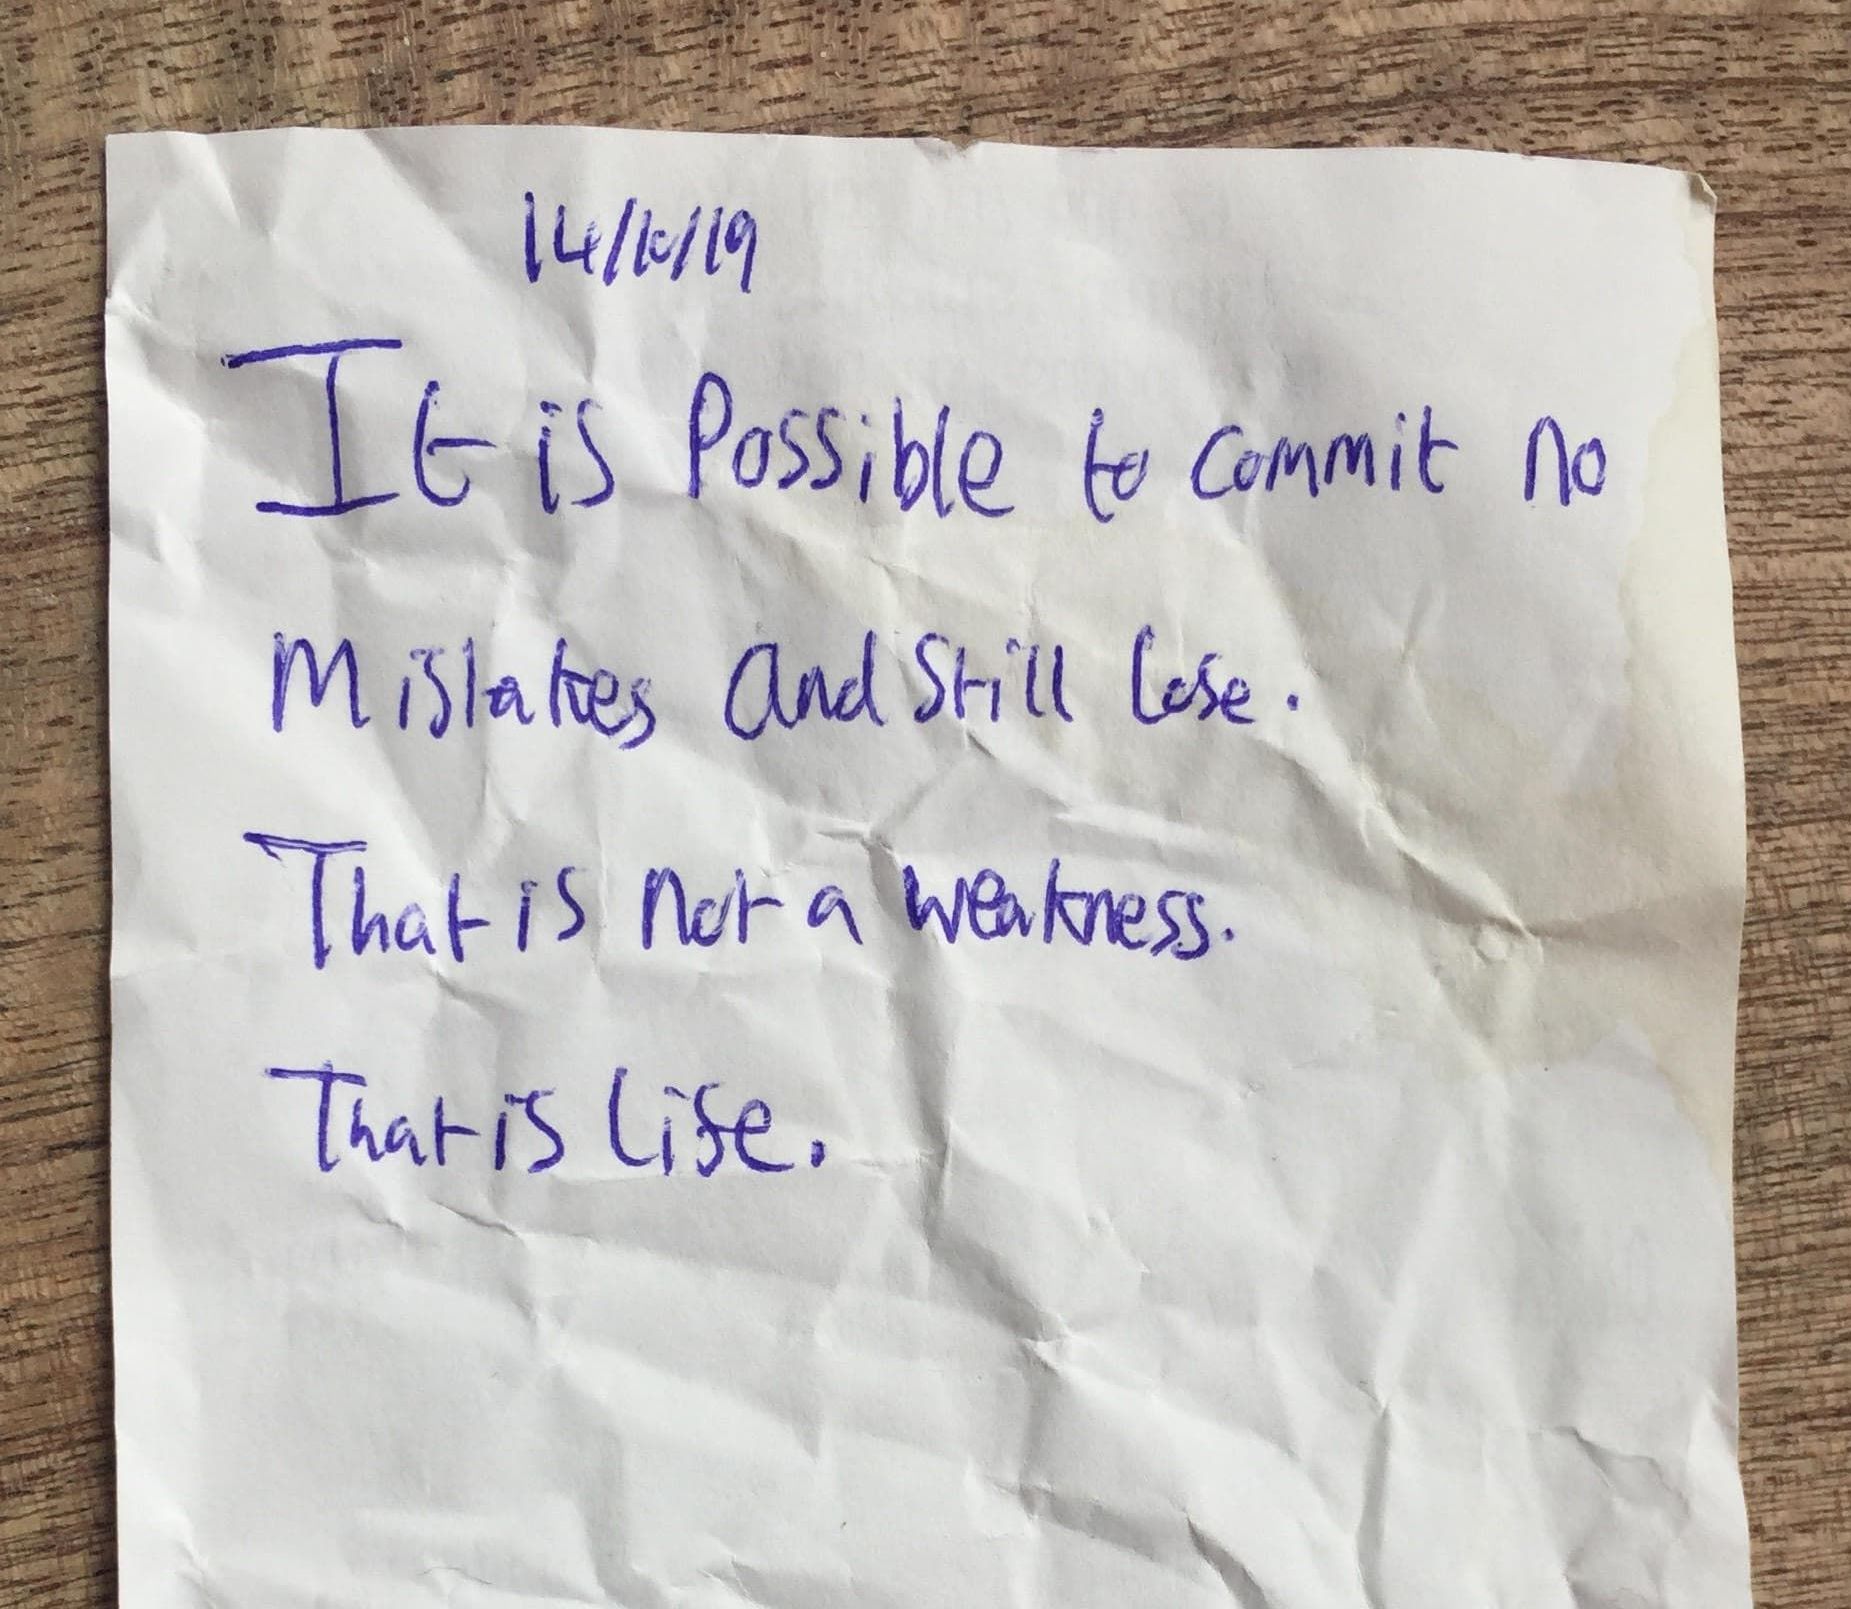 14/10/19
It is Possible to commit no
Mistakes and Still lose.
That is not a weakness.
That is life.